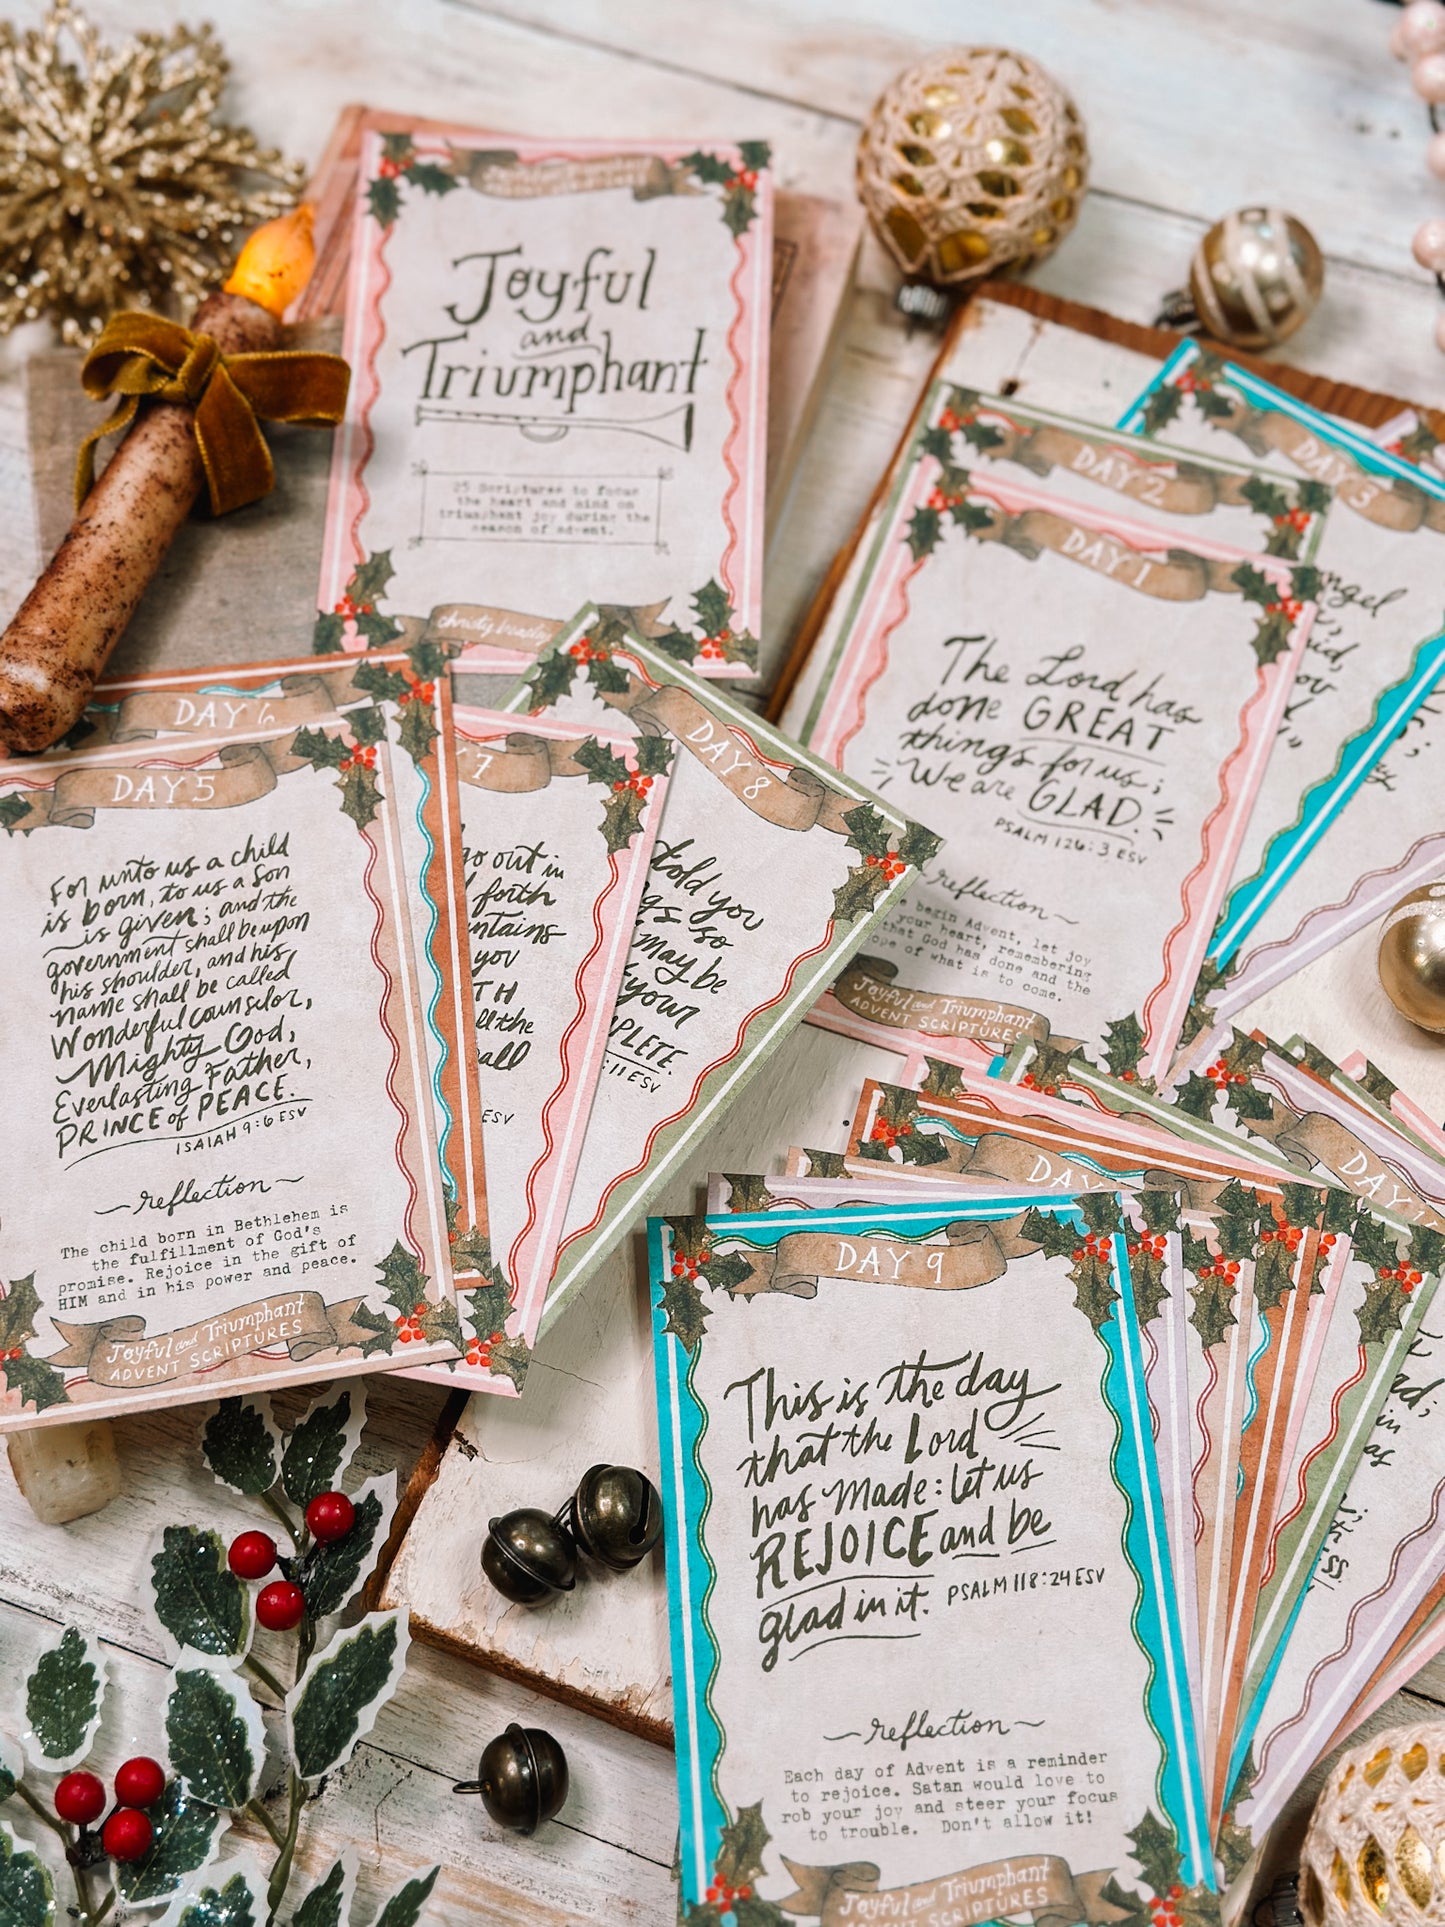 Joyful
and
Triumphant
25 Scriptures to focus
the heart and mind on
triumphant joy during the
season of advent.
christy beasley
DAY 3
ngel
DAY 2
DAY 1
The Lord has
done GREAT
things for us;
We are GLAD.
PSALM 126:3 ESV
reflection
begin Advent, let
your heart, remembering
that God has done and the
of what is to come.
Joyful and Triumphant
ADVENT SCRIPTURES
DAY 6
DAY 5
For unto us a child
is born, to us a son
is given; and the
government shall be upon
his shoulder, and his
name shall be called
Wonderful counselor,
Mighty God,
Everlasting Father,
PRINCE of PEACE.
ISAIAH 9:6 ESV
reflection
The child born in Bethlehem is
the fulfillment of God's
promise. Rejoice in the gift of
HIM and in his power and peace.
Joyful and Triumphant
ADVENT SCRIPTURES
7
go out in
forth
ntains
you
TH
ll the
all
ESV
DAY 8
told you
gs so
may be
your
PLETE.
:11 ESV
DAY
DAY
DAY 9
This is the day
that the Lord
has made: let us
REJOICE and be
glad in it. PSALM 118:24 ESV
reflection
Each day of Advent is a reminder
to rejoice. Satan would love to
rob your joy and steer your focus
to trouble. Don't allow it!
Joyful and Triumphant
ADVENT SCRIPTURES